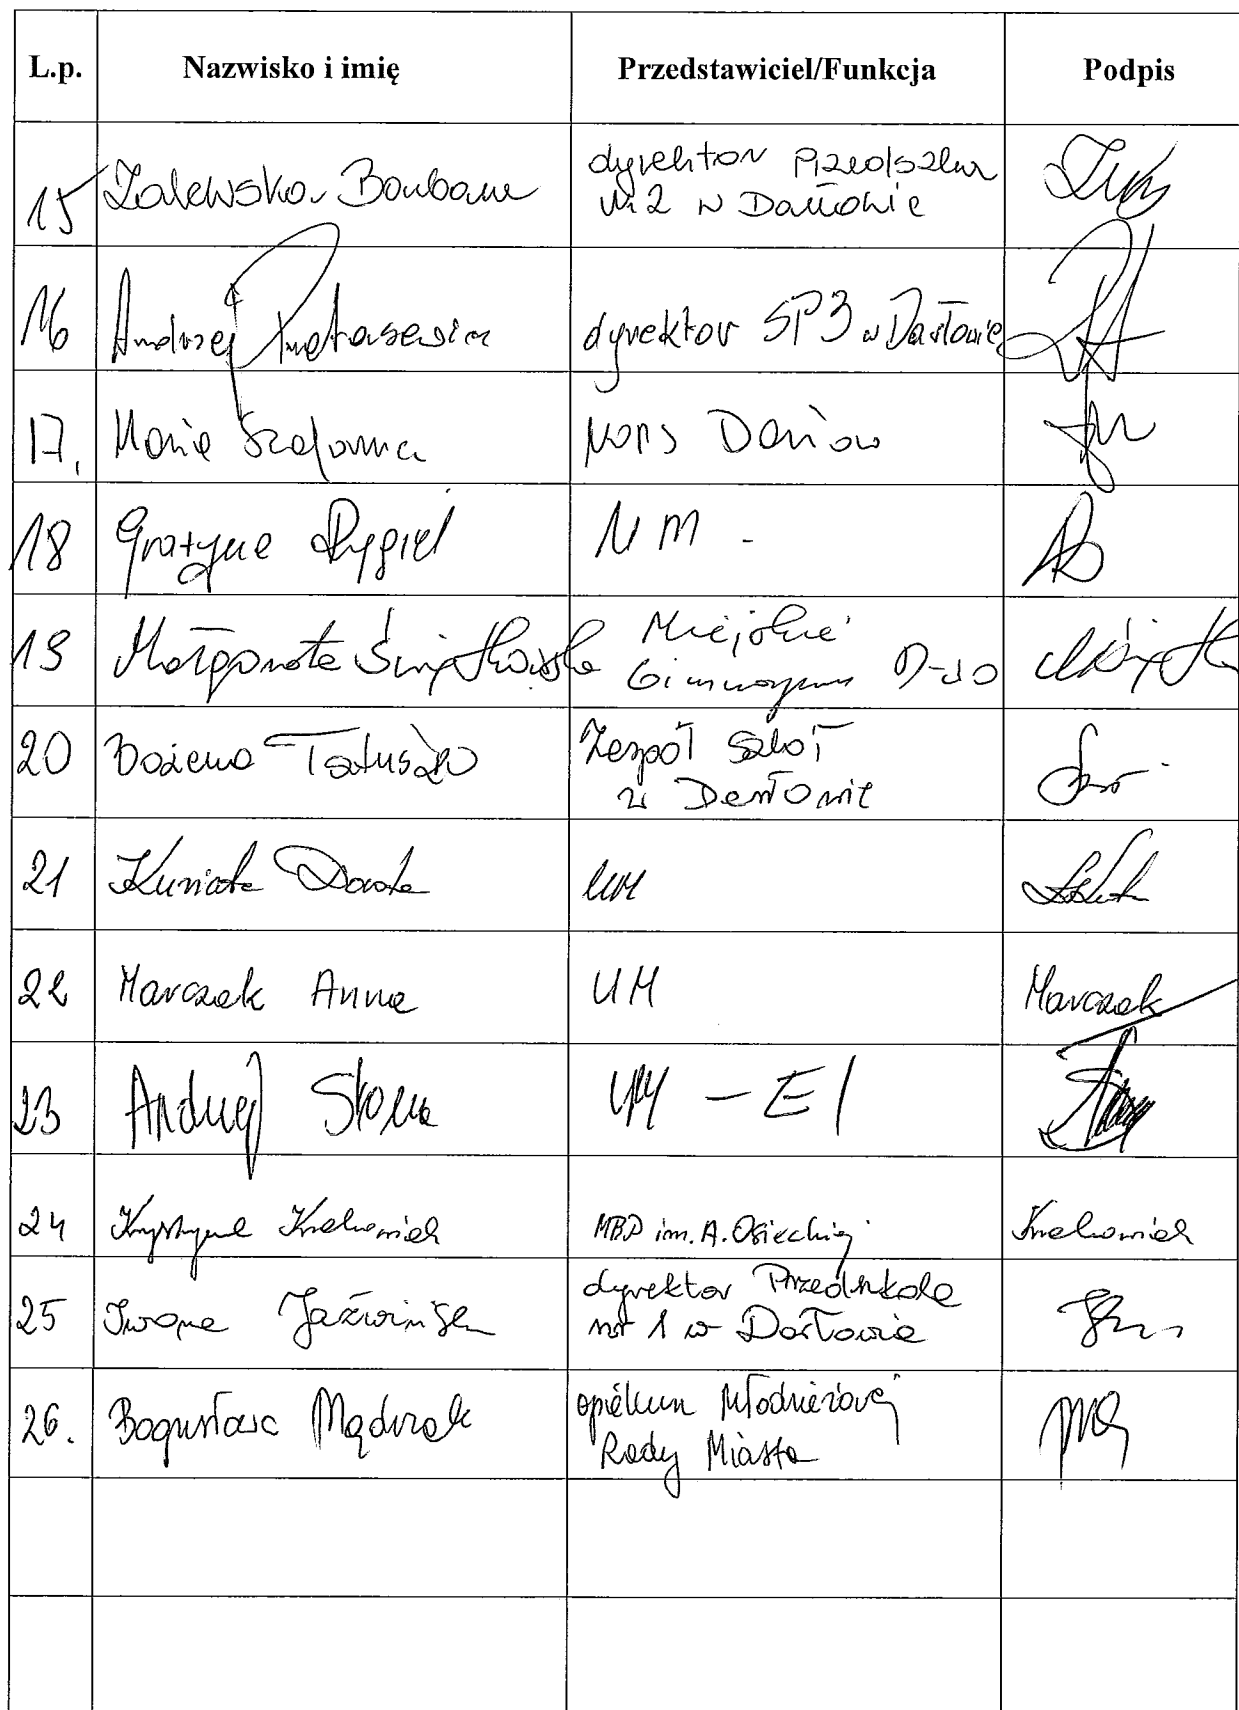 L.p. Nazwisko i imię Przedstawiciel/Funkcja Podpis
15 Zalewska Barbara dyrektor Przedszkola
nr 2 w Darłowie
16 Andrzej dyrektor SP3 w Darłowie
17. Maria MOPS Darłowo
18 Grażyna Rygiel UM -
19 Małgorzata Świątkowska Miejskie
Gimnazjum D-wo
20 Bożena Tatuszko Zespół Szkół
w Darłowie
21 Kuriata Dorota UM
22 Marczak Anna UM Marczak
23 Andrzej UM - EI
24 Krystyna MBP im. A. Osieckiej
25 Iwona Jaźwińska dyrektor Przedszkola
nr 1 w Darłowie
26. Bogusława Mądrzak opiekun Młodzieżowej
Rady Miasta